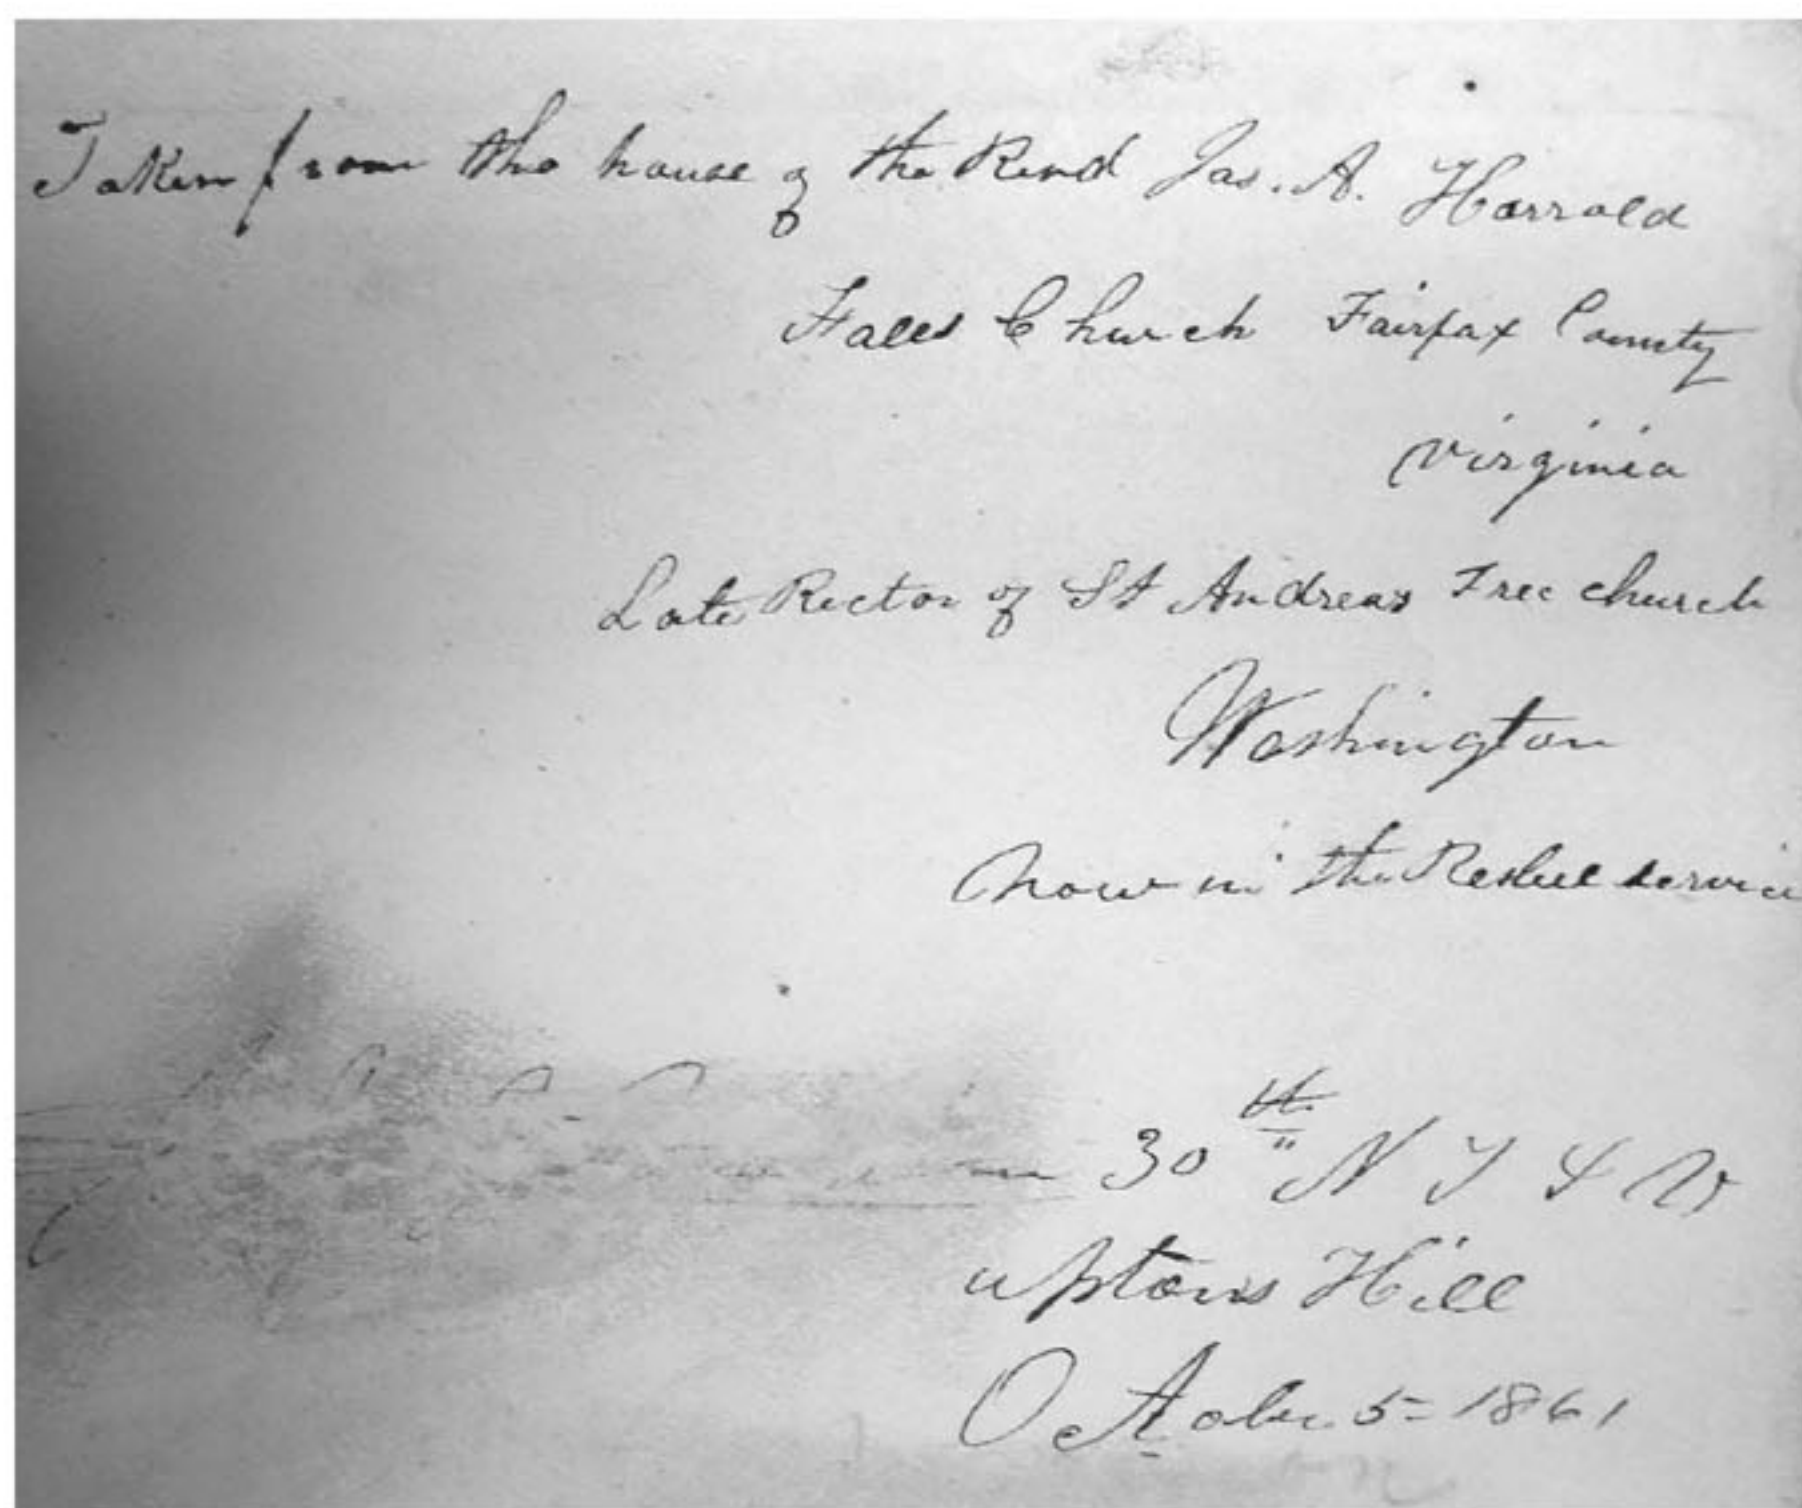 Taken from the house of the Revd Jas. A. Harrold
Falls Church Fairfax County
Virginia
Late Rector of St Andrews Free church
Washington
Now in the Rebel service
30th N Y S V
uptons Hill
October 5 = 1861